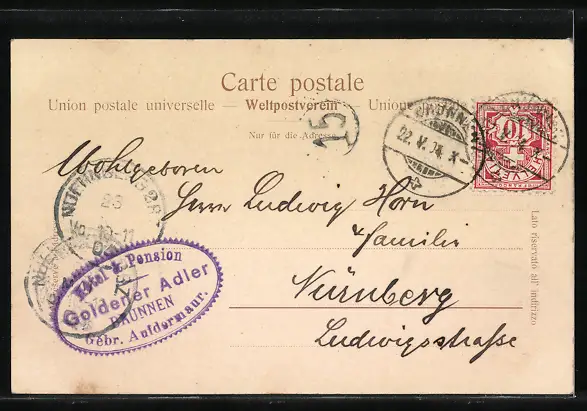 Carte postale
Union postale universelle — Weltpostverein — Union
Nur für die Adresse
15
BRUNNEN
22. V. 04. X
10
HELVETIA
Wohlgeboren
Herrn Ludwig Horn
& Familie
Nürnberg
Ludwigsstraße
NUERNBERG
23
Hotel & Pension
Goldener Adler
BRUNNEN
Gebr. Aufdermaur.
Lato riservato all' indirizzo